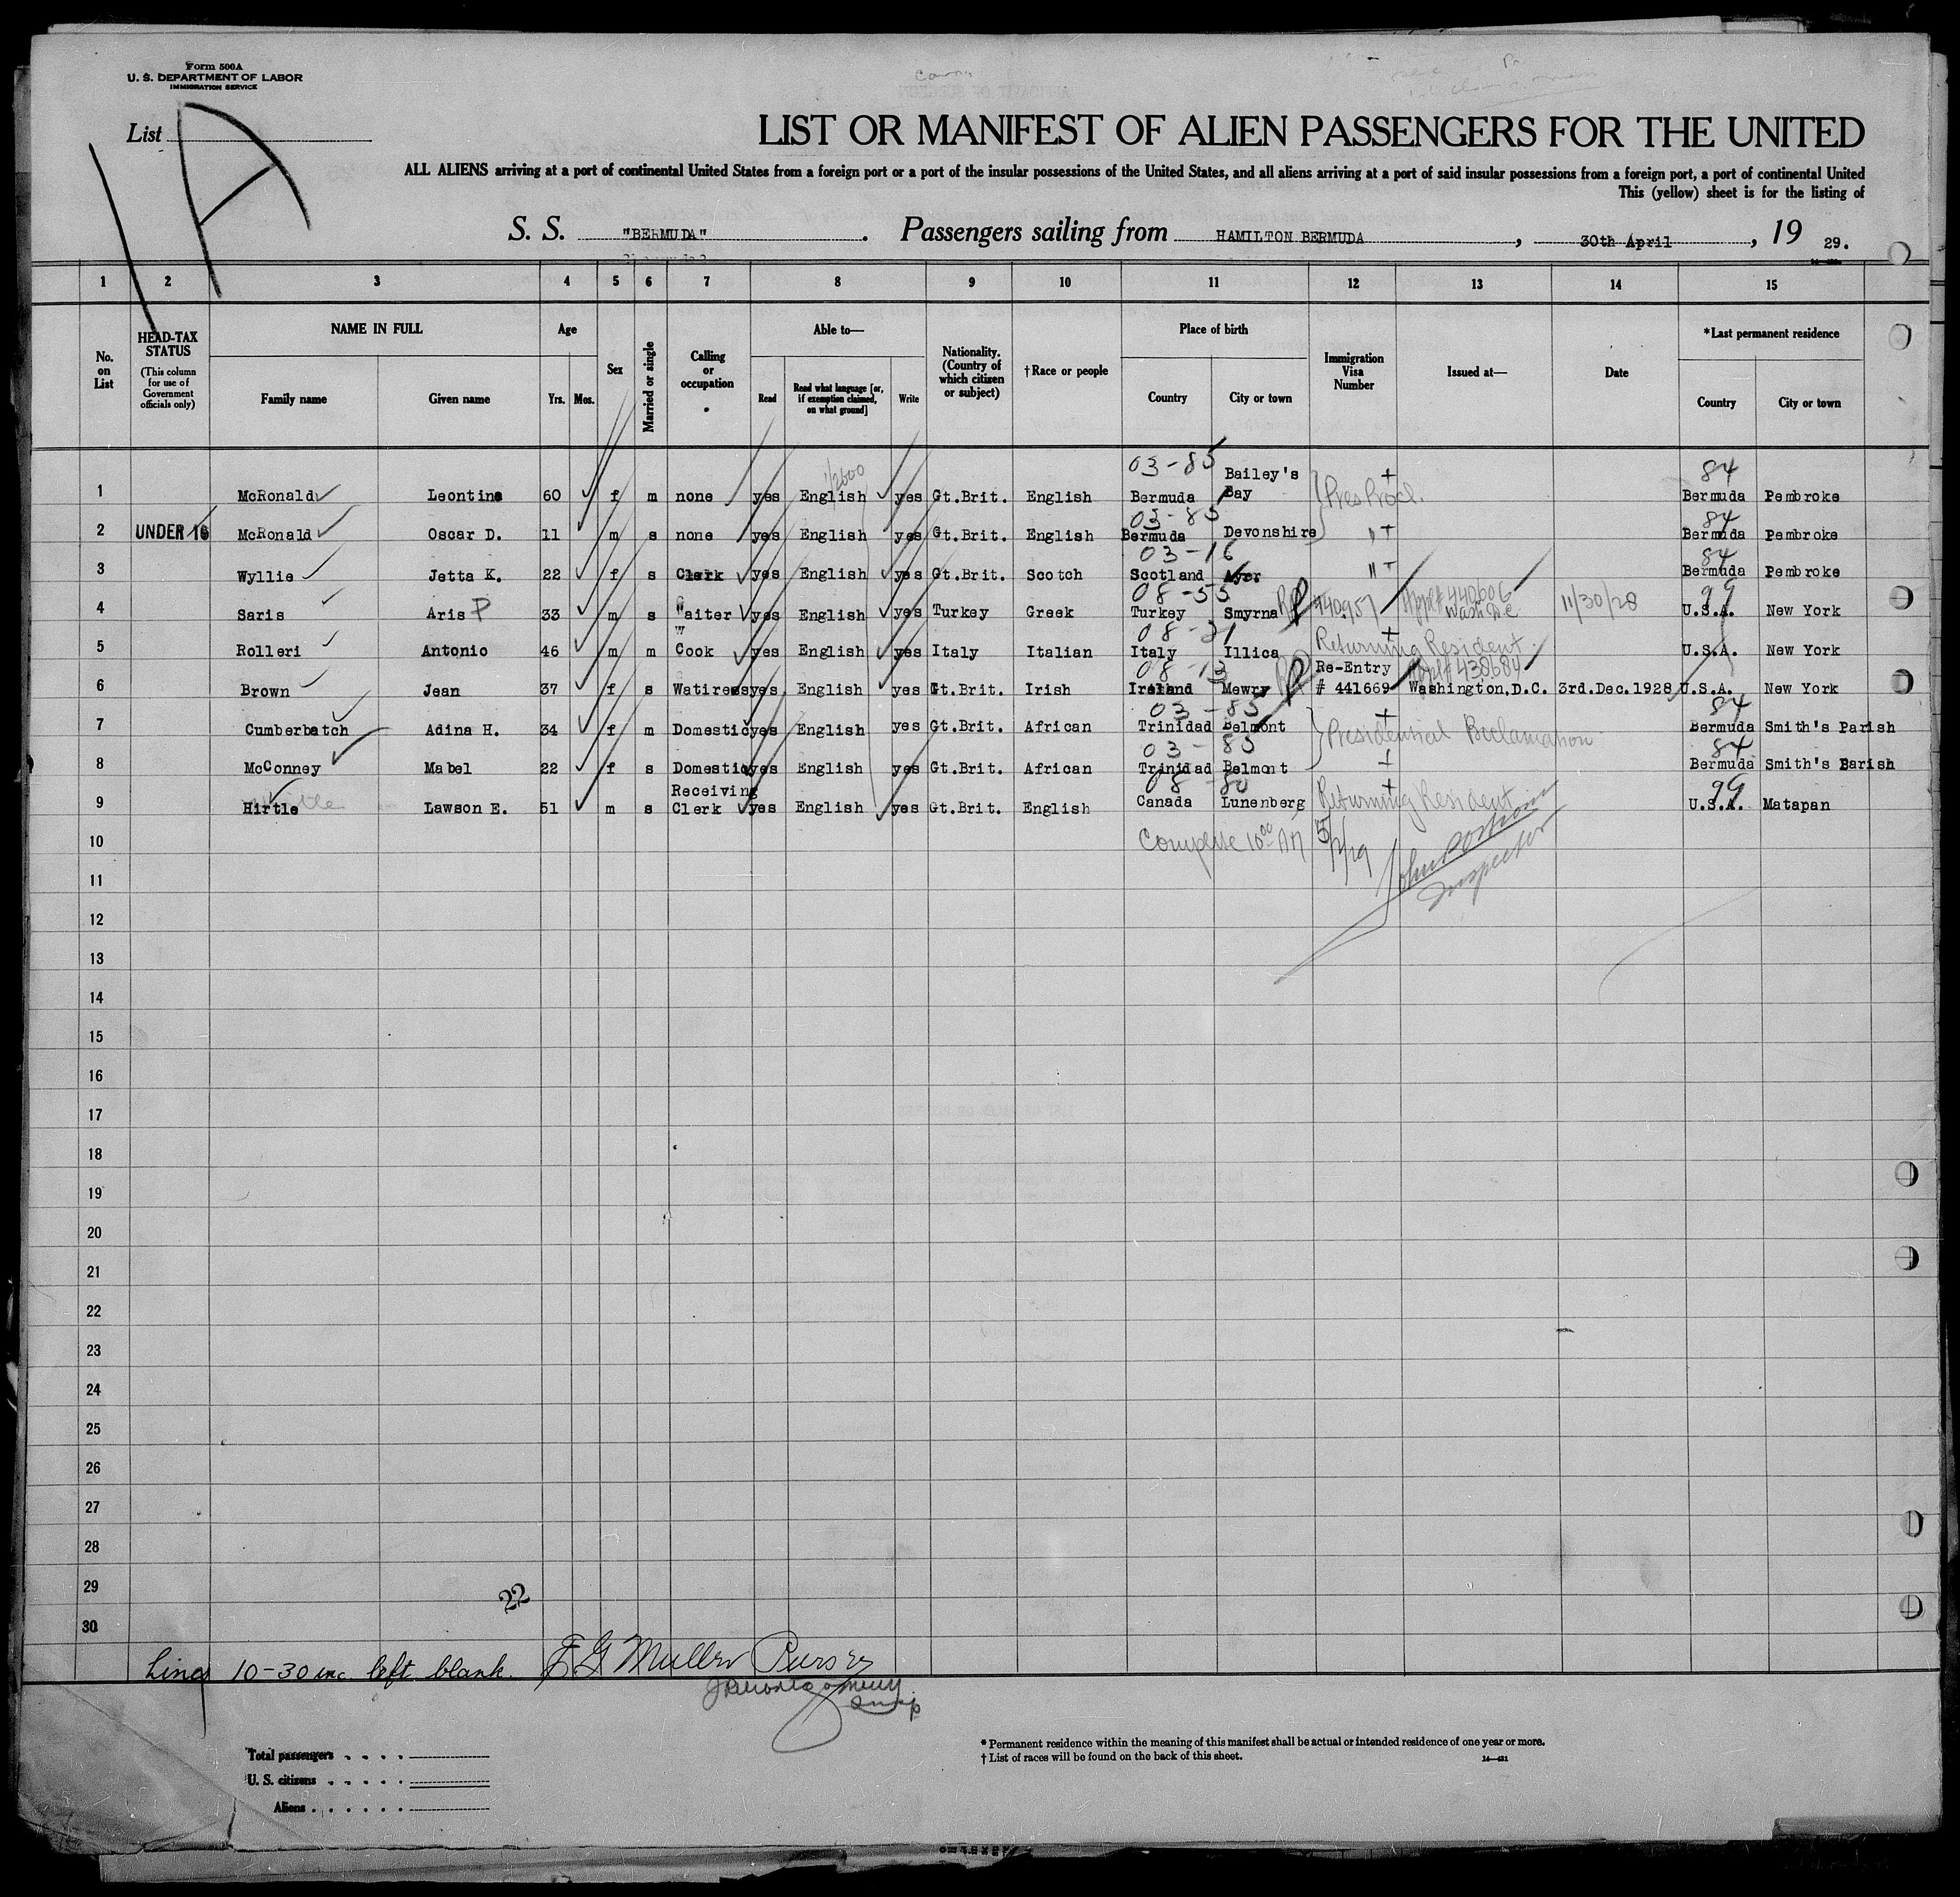 Form 500A
U. S. DEPARTMENT OF LABOR
IMMIGRATION SERVICE
List 1A
LIST OR MANIFEST OF ALIEN PASSENGERS FOR THE UNITED
ALL ALIENS arriving at a port of continental United States from a foreign port or a port of the insular possessions of the United States, and all aliens arriving at a port of said insular possessions from a foreign port, a port of continental United
This (yellow) sheet is for the listing of
S. S. "BERMUDA". Passengers sailing from HAMILTON BERMUDA, 30th April, 19 29.
1 2 3 4 5 6 7 8 9 10 11 12 13 14 15
No. on List
HEAD-TAX STATUS (This column for use of Government officials only)
NAME IN FULL Family name Given name
Age Yrs. Mos.
Sex
Married or single
Calling or occupation
Able to— Read Read what language [or, if exemption claimed, on what ground] Write
Nationality. (Country of which citizen or subject)
†Race or people
Place of birth Country City or town
Immigration Visa Number
Issued at—
Date
*Last permanent residence Country City or town
03-85 84
1 McRonald Leontine 60 f m none yes English yes Gt.Brit. English Bermuda Bailey's Bay Pres Procl. Bermuda Pembroke
03-85 84
2 UNDER 16 McRonald Oscar D. 11 m s none yes English yes Gt.Brit. English Bermuda Devonshire " Bermuda Pembroke
03-16 84
3 Wyllie Jetta K. 22 f s Clerk yes English yes Gt.Brit. Scotch Scotland Ayer " Bermuda Pembroke
08-55 99
4 Saris Aris P 33 m s Waiter yes English yes Turkey Greek Turkey Smyrna RP 440957 Appl# 440606 Wash DC 11/30/28 U.S.A. New York
08-21
5 Rolleri Antonio 46 m m Cook yes English yes Italy Italian Italy Illica Returning Resident U.S.A. New York
08-13 Appl# 438684
6 Brown Jean 37 f s Watiress yes English yes Gt.Brit. Irish Ireland Mewry RP Re-Entry # 441669 Washington,D.C. 3rd.Dec.1928 U.S.A. New York
03-85 84
7 Cumberbatch Adina H. 34 f m Domestic yes English yes Gt.Brit. African Trinidad Belmont Presidential Proclamation Bermuda Smith's Parish
03-85 84
8 McConney Mabel 22 f s Domestic yes English yes Gt.Brit. African Trinidad Belmont Bermuda Smith's Parish
08-80 99
9 Hirtle Lawson E. 51 m s Receiving Clerk yes English yes Gt.Brit. English Canada Lunenberg Returning Resident U.S.A. Matapan
10 Complete 10 00 AM 5/2/29
11 Inspector
12
13
14
15
16
17
18
19
20
21
22
23
24
25
26
27
28
29 22
30
Lines 10-30 inc. left blank. F G Muller Purser
JR Montgomery
Insp
Total passengers
U. S. citizens
Aliens
* Permanent residence within the meaning of this manifest shall be actual or intended residence of one year or more.
† List of races will be found on the back of this sheet.